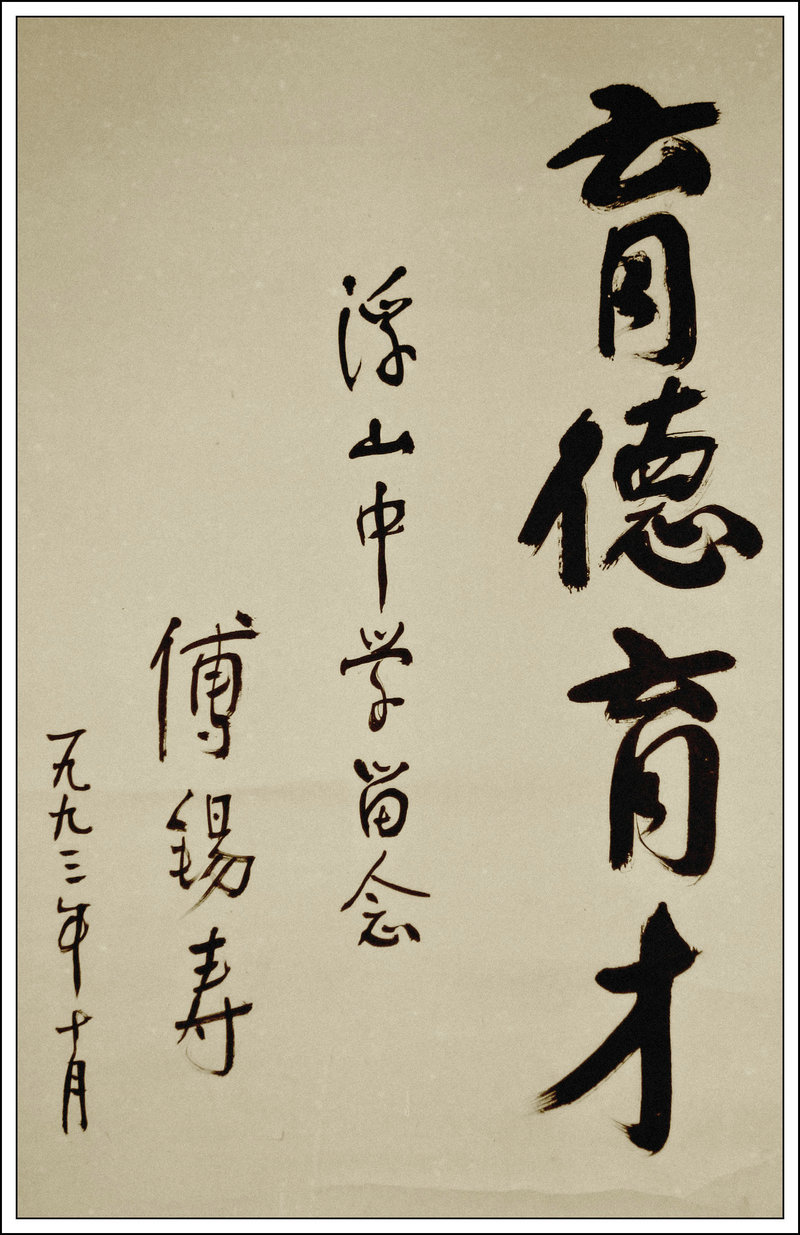 育德育才
浮山中学留念
傅锡寿
一九九三年十月